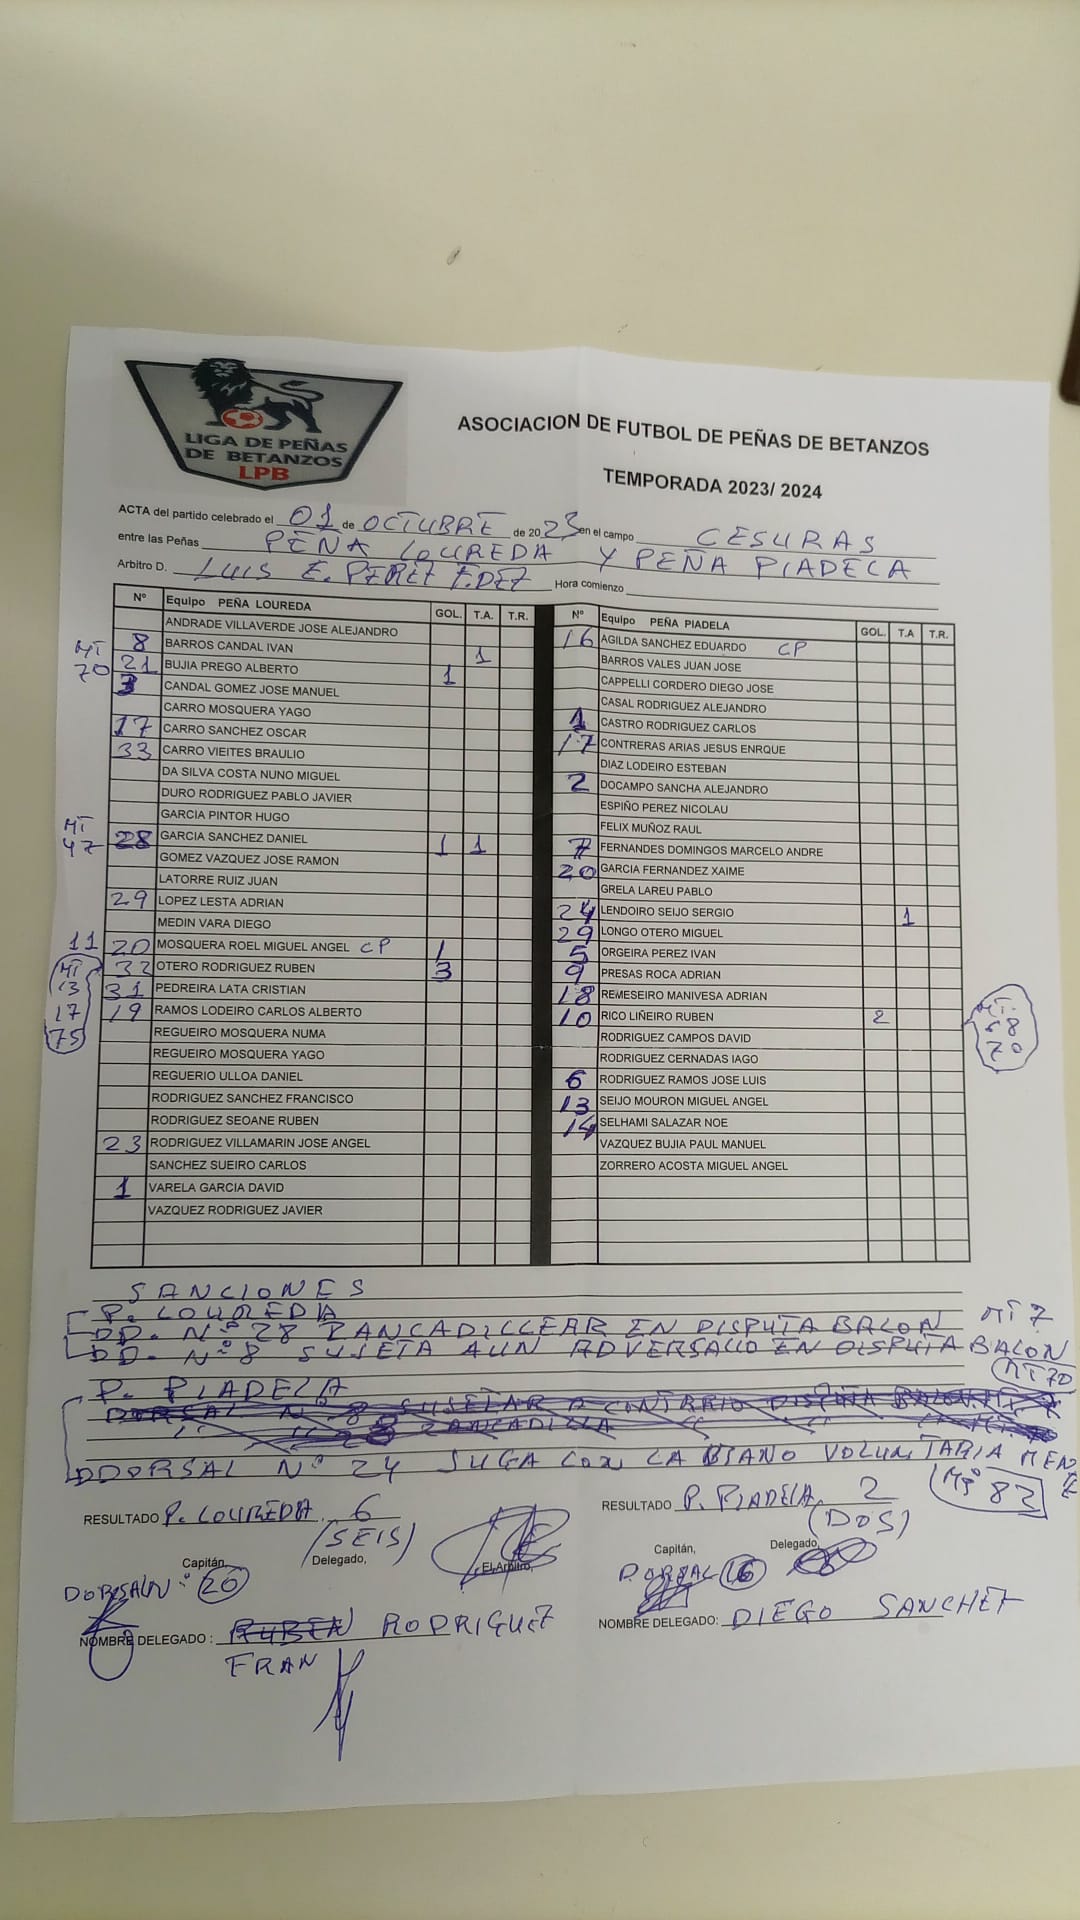 LIGA DE PEÑAS
DE BETANZOS
LPB
ASOCIACION DE FUTBOL DE PEÑAS DE BETANZOS
TEMPORADA 2023/ 2024
ACTA del partido celebrado el 01 de OCTUBRE de 2023 en el campo CESURAS
entre las Peñas PEÑA LOUREDA Y PEÑA PIADELA
Arbitro D. LUIS E. PEREZ F.DEZ Hora comienzo
Nº Equipo PEÑA LOUREDA GOL. T.A. T.R.
ANDRADE VILLAVERDE JOSE ALEJANDRO
8 BARROS CANDAL IVAN 1
MT 70 21 BUJIA PREGO ALBERTO 1
3 CANDAL GOMEZ JOSE MANUEL
CARRO MOSQUERA YAGO
17 CARRO SANCHEZ OSCAR
33 CARRO VIEITES BRAULIO
DA SILVA COSTA NUNO MIGUEL
DURO RODRIGUEZ PABLO JAVIER
GARCIA PINTOR HUGO
MT 47 28 GARCIA SANCHEZ DANIEL 1 1
GOMEZ VAZQUEZ JOSE RAMON
LATORRE RUIZ JUAN
29 LOPEZ LESTA ADRIAN
MEDIN VARA DIEGO
11 20 MOSQUERA ROEL MIGUEL ANGEL CP 1
32 OTERO RODRIGUEZ RUBEN 3
MT
13
17
75
31 PEDREIRA LATA CRISTIAN
19 RAMOS LODEIRO CARLOS ALBERTO
REGUEIRO MOSQUERA NUMA
REGUEIRO MOSQUERA YAGO
REGUERIO ULLOA DANIEL
RODRIGUEZ SANCHEZ FRANCISCO
RODRIGUEZ SEOANE RUBEN
23 RODRIGUEZ VILLAMARIN JOSE ANGEL
SANCHEZ SUEIRO CARLOS
1 VARELA GARCIA DAVID
VAZQUEZ RODRIGUEZ JAVIER
Nº Equipo PEÑA PIADELA GOL. T.A T.R.
16 AGILDA SANCHEZ EDUARDO CP
BARROS VALES JUAN JOSE
CAPPELLI CORDERO DIEGO JOSE
CASAL RODRIGUEZ ALEJANDRO
1 CASTRO RODRIGUEZ CARLOS
17 CONTRERAS ARIAS JESUS ENRQUE
DIAZ LODEIRO ESTEBAN
2 DOCAMPO SANCHA ALEJANDRO
ESPIÑO PEREZ NICOLAU
FELIX MUÑOZ RAUL
7 FERNANDES DOMINGOS MARCELO ANDRE
20 GARCIA FERNANDEZ XAIME
GRELA LAREU PABLO
24 LENDOIRO SEIJO SERGIO 1
29 LONGO OTERO MIGUEL
5 ORGEIRA PEREZ IVAN
9 PRESAS ROCA ADRIAN
18 REMESEIRO MANIVESA ADRIAN
10 RICO LIÑEIRO RUBEN 2
MT.
68
70
RODRIGUEZ CAMPOS DAVID
RODRIGUEZ CERNADAS IAGO
6 RODRIGUEZ RAMOS JOSE LUIS
13 SEIJO MOURON MIGUEL ANGEL
14 SELHAMI SALAZAR NOE
VAZQUEZ BUJIA PAUL MANUEL
ZORRERO ACOSTA MIGUEL ANGEL
SANCIONES
P. LOUREDA
DD. Nº 28 ZANCADILLEAR EN DISPUTA BALON MT 7
DD. Nº 8 SUJETA A UN ADVERSARIO EN DISPUTA BALON
MT 70
P. PIADELA
DORSAL Nº 24 JUGA CON LA MANO VOLUNTARIAMEN
MT 82
RESULTADO P. LOUREDA, 6
(SEIS)
RESULTADO P. PIADELA, 2
(DOS)
Capitán, Delegado, El Arbitro, Capitán, Delegado,
DORSAL Nº 20
DORSAL 16
NOMBRE DELEGADO : RUBEN RODRIGUEZ
FRAN
NOMBRE DELEGADO: DIEGO SANCHEZ